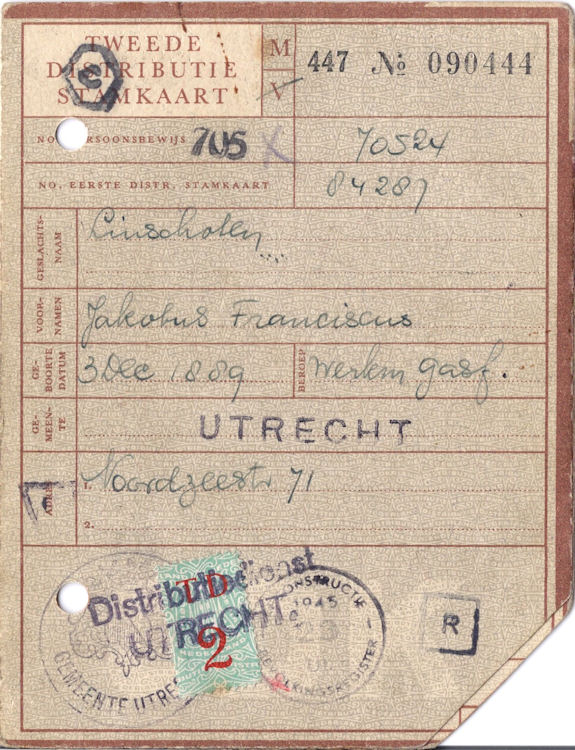 TWEEDE
DISTRIBUTIE
STAMKAART
S
M
V
447 № 090444
NO. PERSOONSBEWIJS 705 X 70524
NO. EERSTE DISTR. STAMKAART 84287
GESLACHTS-
NAAM
Linschoten
VOOR-
NAMEN
Jakobus Franciscus
GE-
BOORTE
DATUM
3 Dec 1889
BEROEP
Werkm gasf.
GE-
MEEN-
TE
UTRECHT
ADRES
1. Noordzeestr 71
2.
Distributiedienst
UTRECHT
TD
2
GEMEENTE UTRE
CONSTRUCTIE
1945
BEVOLKINGSREGISTER
R